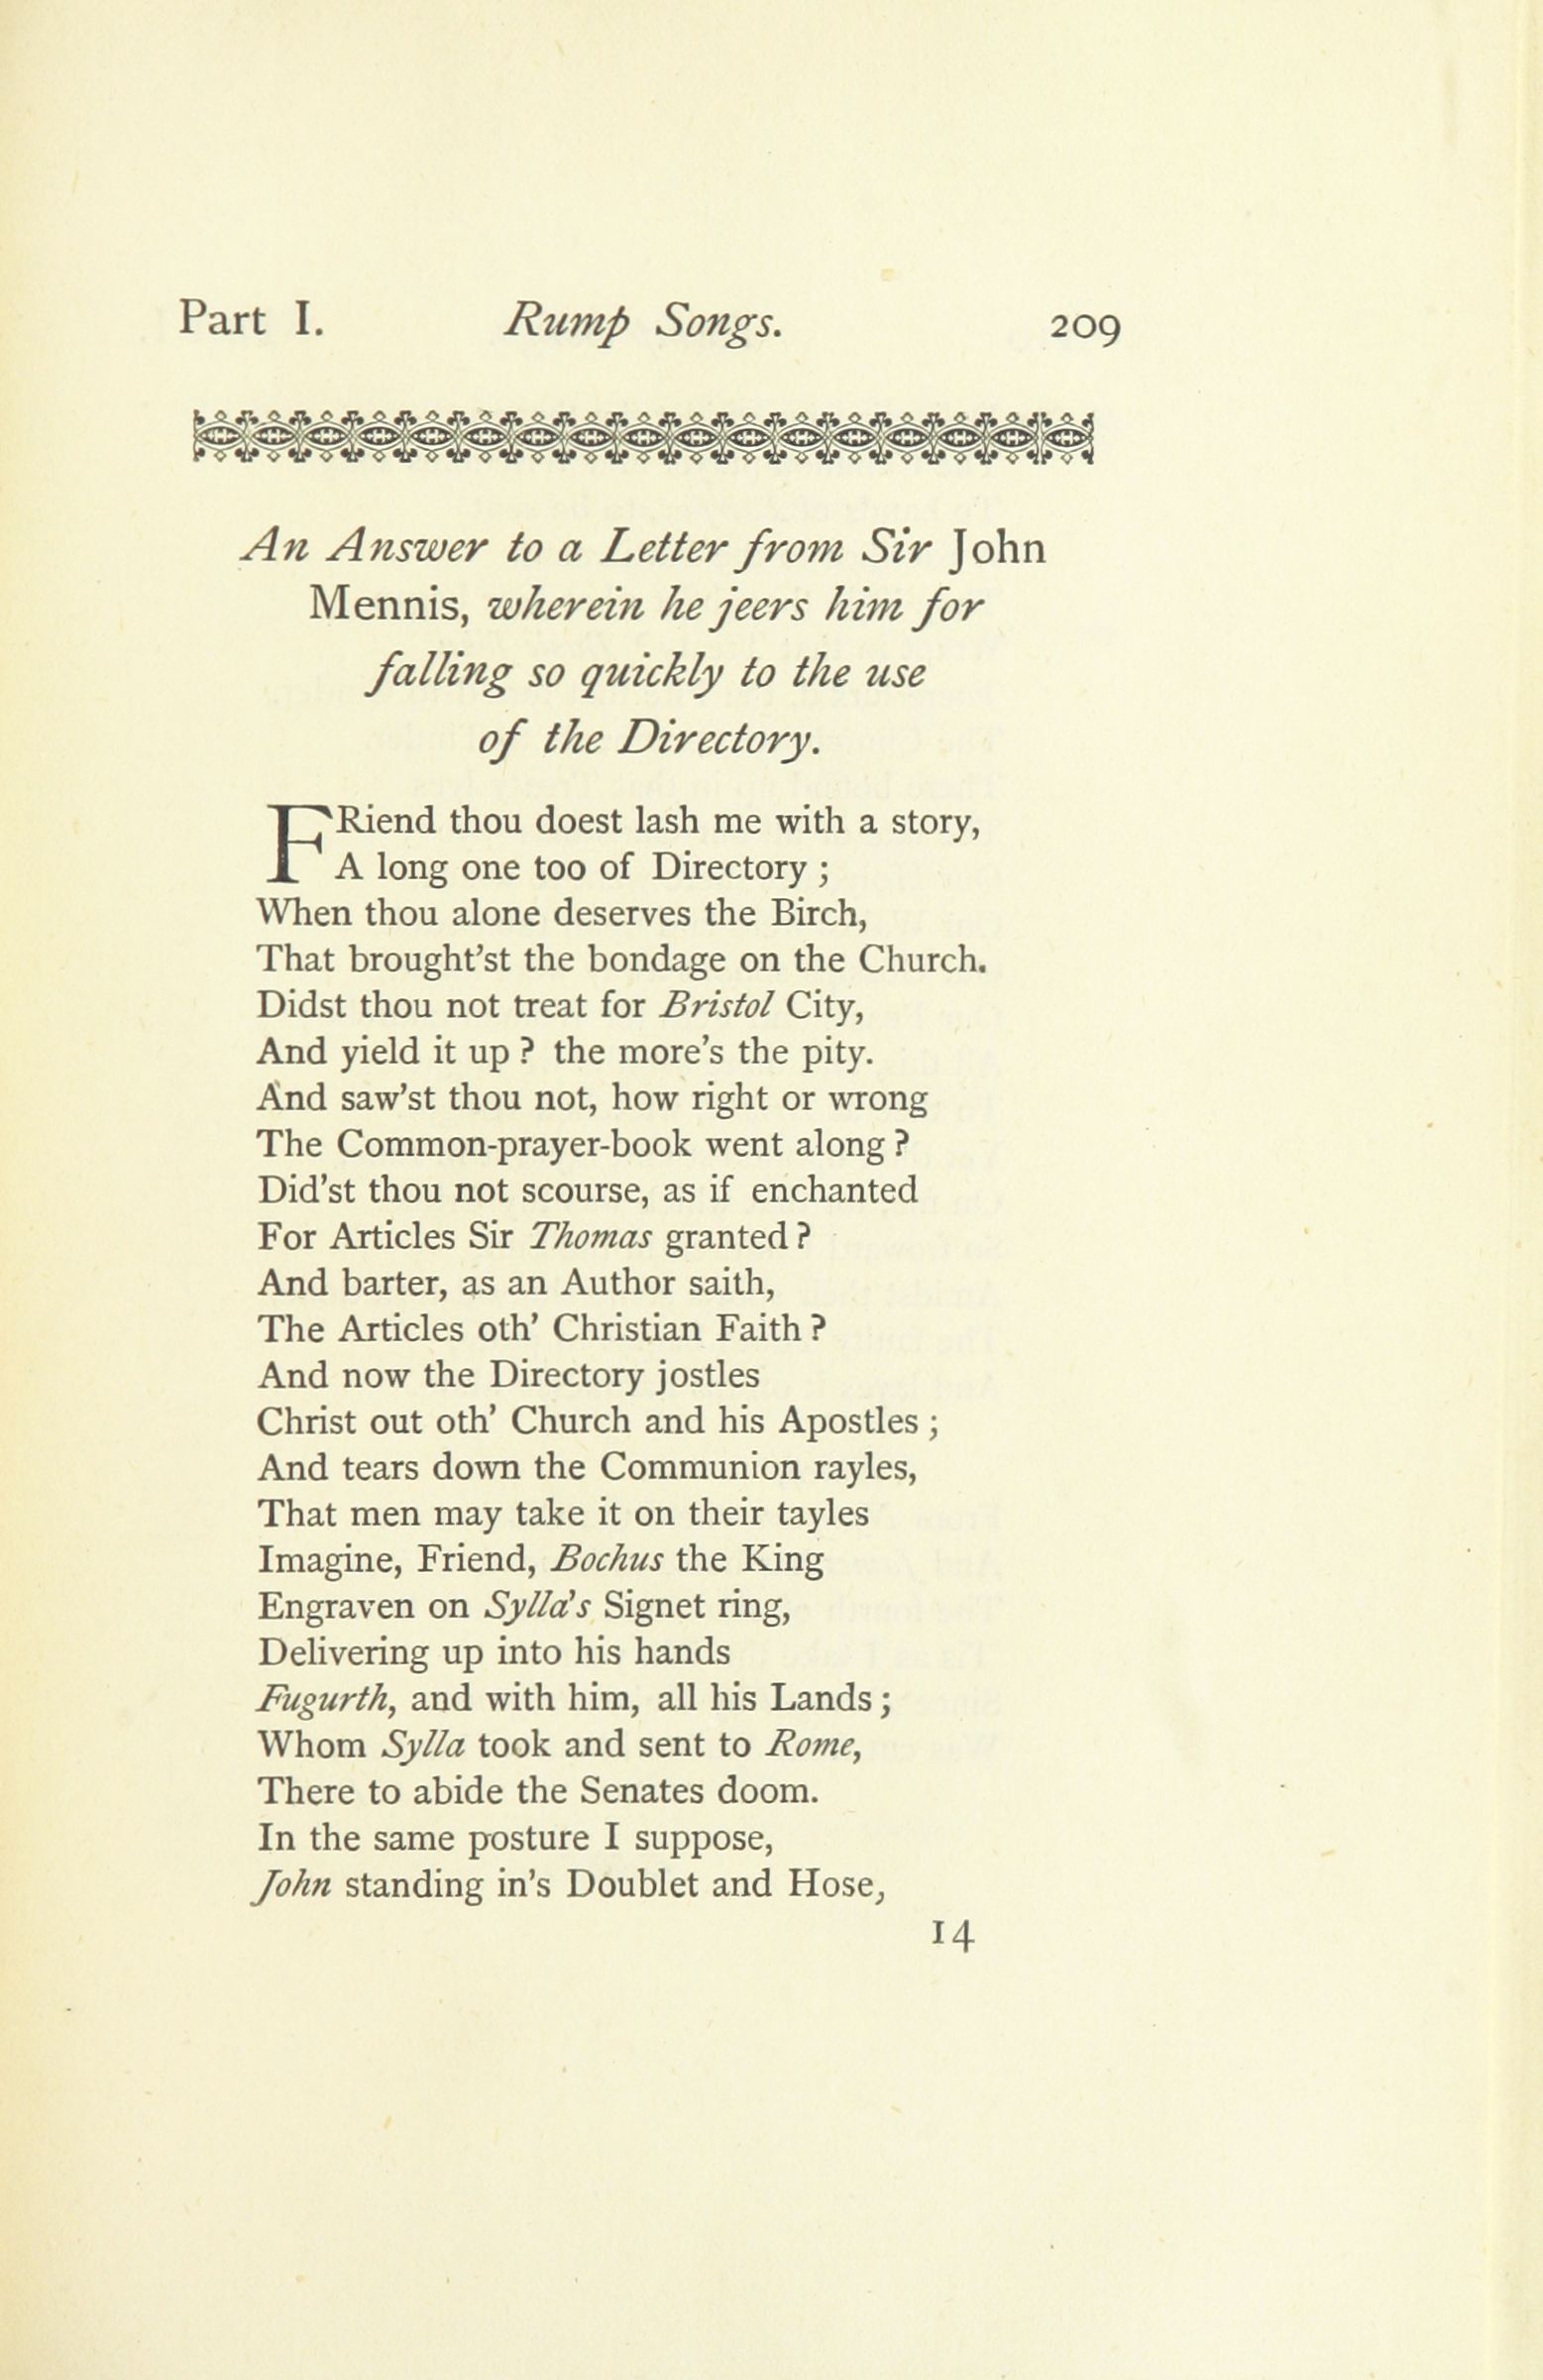 Part I. Rump Songs. 209
An Answer to a Letter from Sir John
Mennis, wherein he jeers him for
falling so quickly to the use
of the Directory.
FRiend thou doest lash me with a story,
A long one too of Directory ;
When thou alone deserves the Birch,
That brought'st the bondage on the Church.
Didst thou not treat for Bristol City,
And yield it up ? the more's the pity.
And saw'st thou not, how right or wrong
The Common-prayer-book went along ?
Did'st thou not scourse, as if enchanted
For Articles Sir Thomas granted ?
And barter, as an Author saith,
The Articles oth' Christian Faith ?
And now the Directory jostles
Christ out oth' Church and his Apostles ;
And tears down the Communion rayles,
That men may take it on their tayles
Imagine, Friend, Bochus the King
Engraven on Sylla's Signet ring,
Delivering up into his hands
Fugurth, and with him, all his Lands ;
Whom Sylla took and sent to Rome,
There to abide the Senates doom.
In the same posture I suppose,
John standing in's Doublet and Hose,
14